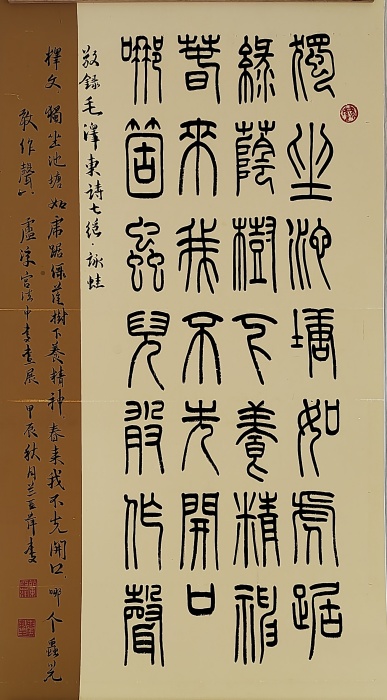 獨坐池塘如虎踞
綠蔭樹下養精神
春來我不先開口
哪箇蟲兒敢作聲
敬録毛澤東詩七絕·詠蛙
釋文 獨坐池塘如虎踞綠蔭樹下養精神春來我不先開口哪个蟲兒
敢作聲 書畫展 甲辰秋月